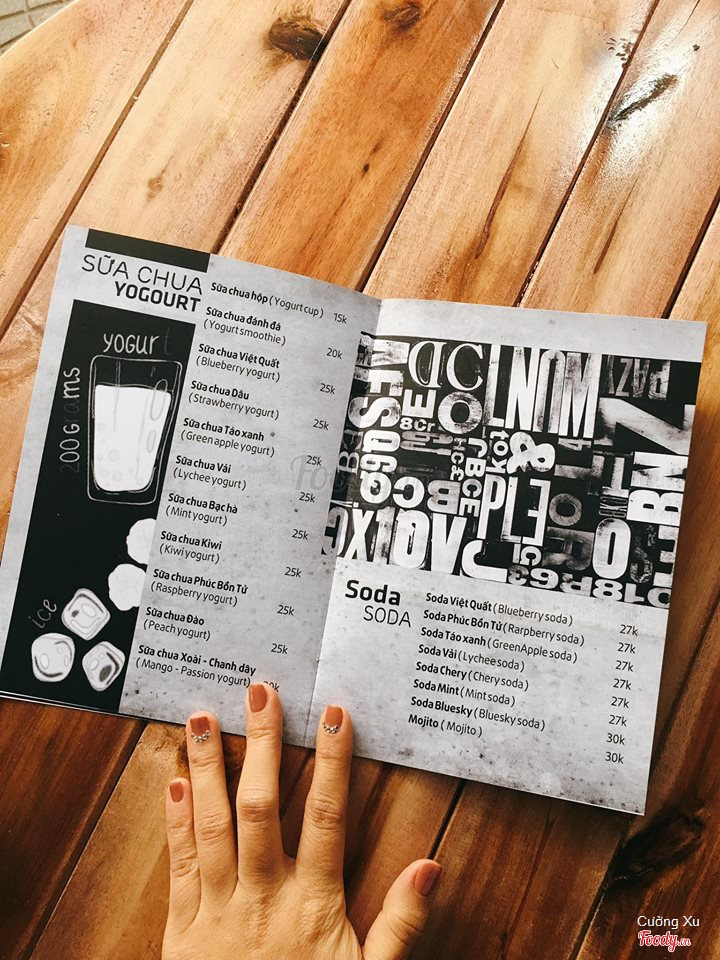 SỮA CHUA
YOGOURT
yogurt
200 grams
ice
Sữa chua hộp ( Yogurt cup ) 15k
Sữa chua đánh đá
( Yogurt smoothie ) 20k
Sữa chua Việt Quất
( Blueberry yogurt ) 25k
Sữa chua Dâu
( Strawberry yogurt ) 25k
Sữa chua Táo xanh
( Green apple yogurt ) 25k
Sữa chua Vải
( Lychee yogurt ) 25k
Sữa chua Bạc hà
( Mint yogurt ) 25k
Sữa chua Kiwi
( Kiwi yogurt ) 25k
Sữa chua Phúc Bồn Tử
( Raspberry yogurt ) 25k
Sữa chua Đào
( Peach yogurt ) 25k
Sữa chua Xoài - Chanh dây
( Mango - Passion yogurt )
Soda
SODA
Soda Việt Quất ( Blueberry soda ) 27k
Soda Phúc Bồn Tử ( Rarpberry soda ) 27k
Soda Táo xanh ( GreenApple soda ) 27k
Soda Vải ( Lychee soda ) 27k
Soda Chery ( Chery soda ) 27k
Soda Mint ( Mint soda ) 27k
Soda Bluesky ( Bluesky soda ) 30k
Mojito ( Mojito ) 30k
Cường Xu
Foody.vn